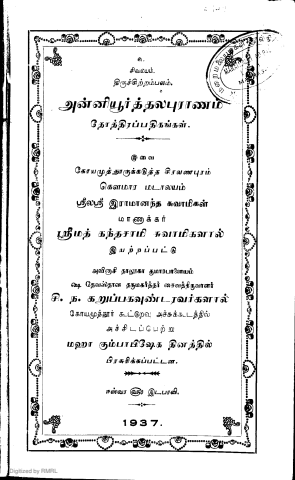 உ
சிவமயம்.
திருச்சிற்றம்பலம்.
அன்னியூர்த்தலபுராணம்
தோத்திரப்பதிகங்கள்.
இவை
கோயமுத்தூருக்கடுத்த சிரவணபுரம்
கௌமார மடாலயம்
ஸ்ரீலஸ்ரீ இராமானந்த சுவாமிகள்
மாணாக்கர்
ஸ்ரீமத் கந்தசாமி சுவாமிகளால்
இயற்றப்பட்டு
அவிநாசி தாலூகா குமாரபாளையம்
ஷ தேவஸ்தான தருமகர்த்தர் சைவத்திருவாளர்
சி. ந. கறுப்பகவுண்டரவர்களால்
கோயமுத்தூர் கூட்டுறவு அச்சுக்கூடத்தில்
அச்சிடப்பெற்று
மஹா கும்பாபிஷேக தினத்தில்
பிரசுரிக்கப்பட்டன.
ஈஸ்வர ௵ இடபரவி.
1937.
Digitized by RMRL